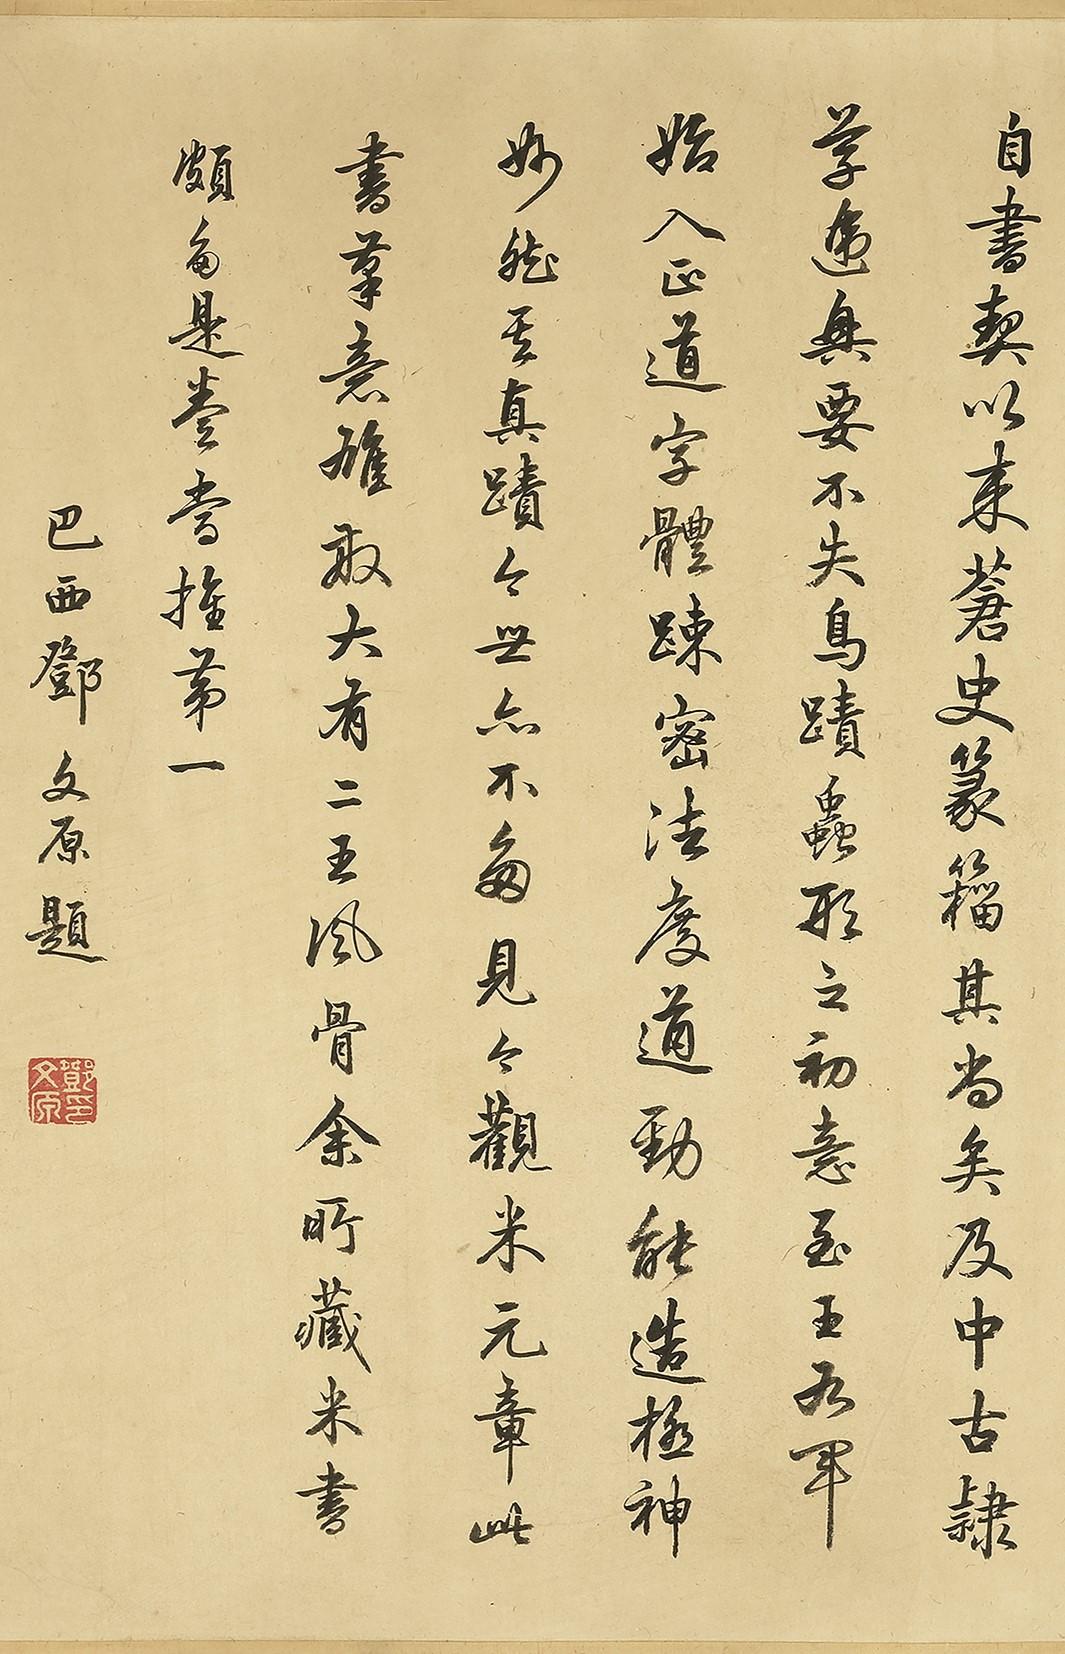 自書契以来蒼史篆籀其尚矣及中古隷
學遞興要不失鳥蹟蟲形之初意至王右軍
始入正道字體踈密法度遒勁能造極神
妙然其真蹟今世亦不多見今觀米元章此
書筆意雄敢大有二王風骨余所藏米書
頗多是卷當推第一
巴西鄧文原題
鄧文原印